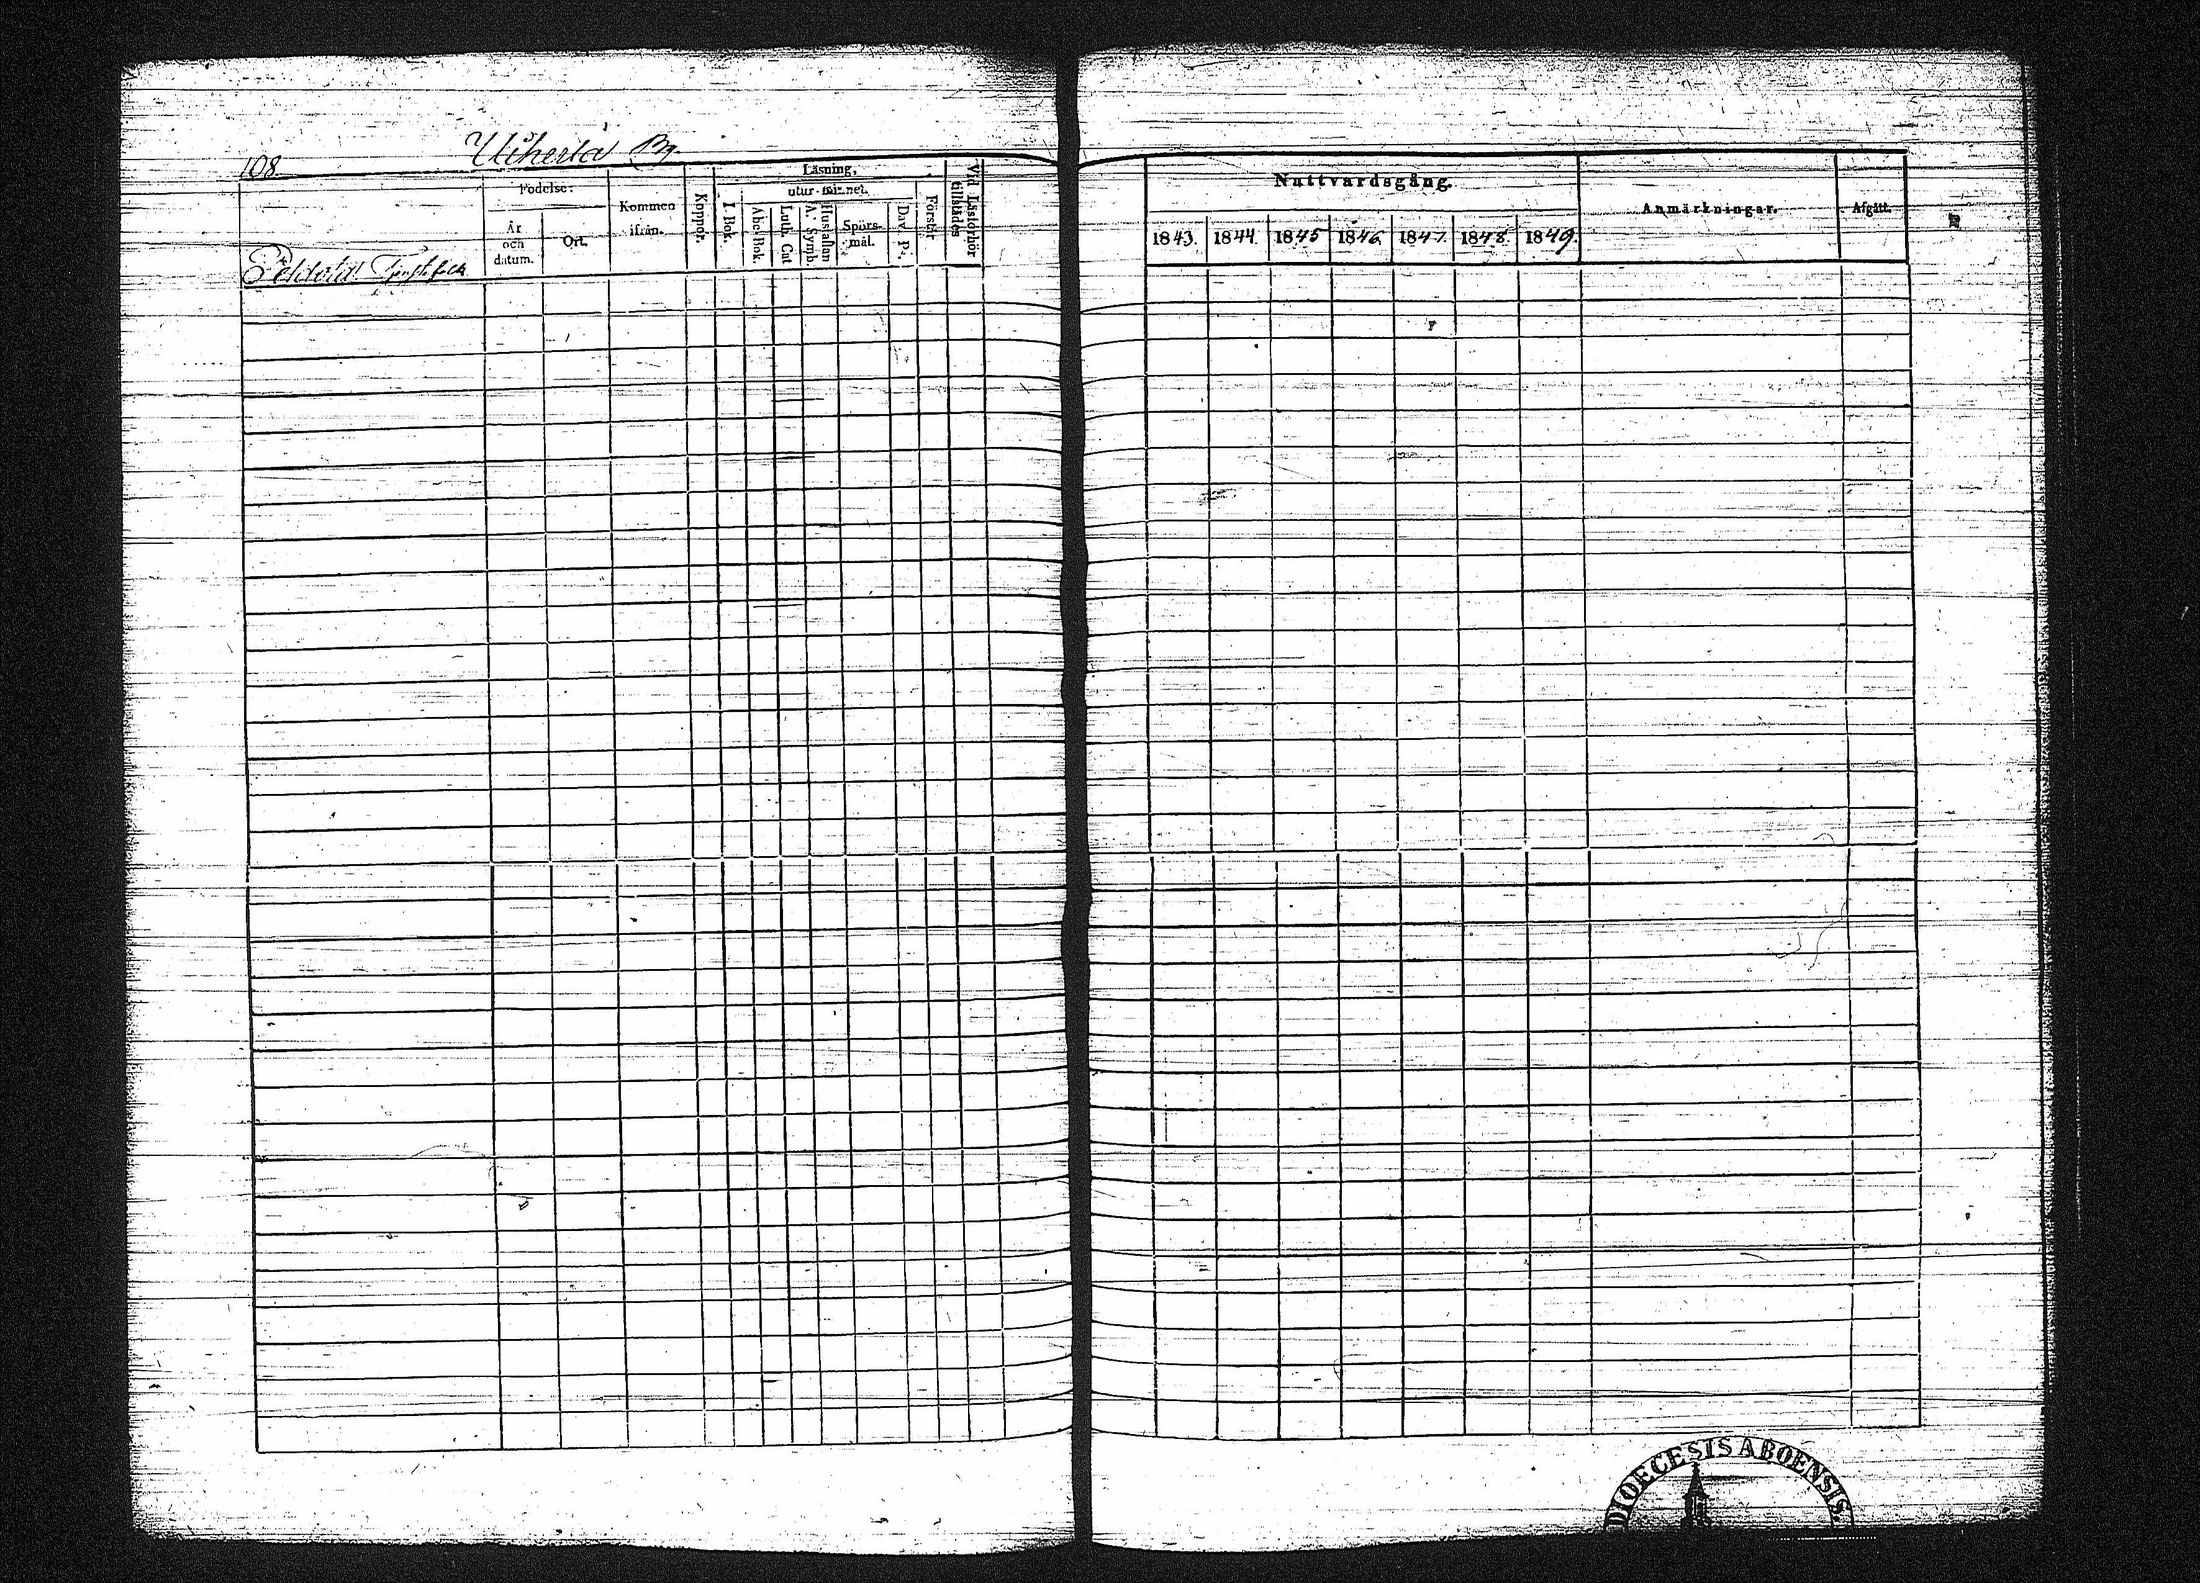 108.
By.
Läsning.
utur minnet.
Födelse-
År och datum.
Ort.
Kommen ifrån.
Koppor.
I Bok.
Abc-Bok.
Luth. Cat
Hustaflan A. Symb.
Spörs-mål.
Dav. Ps.
Förstår
Vid Läsförhör tillstädes
Tjenstefolk
Nattvardsgång.
1843. 1844. 1845 1846. 1847. 1848. 1849.
Anmärkningar.
Afgått.
DIOECESIS ABOENSIS.